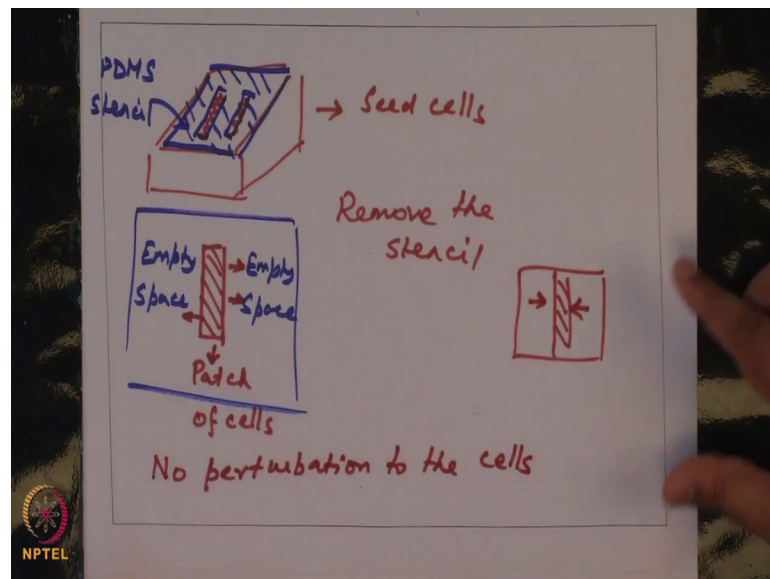 PDMS
stencil
→ Seed cells
Remove the
stencil
Empty
Space
Empty
Space
Patch
of cells
No perturbation to the cells
NPTEL